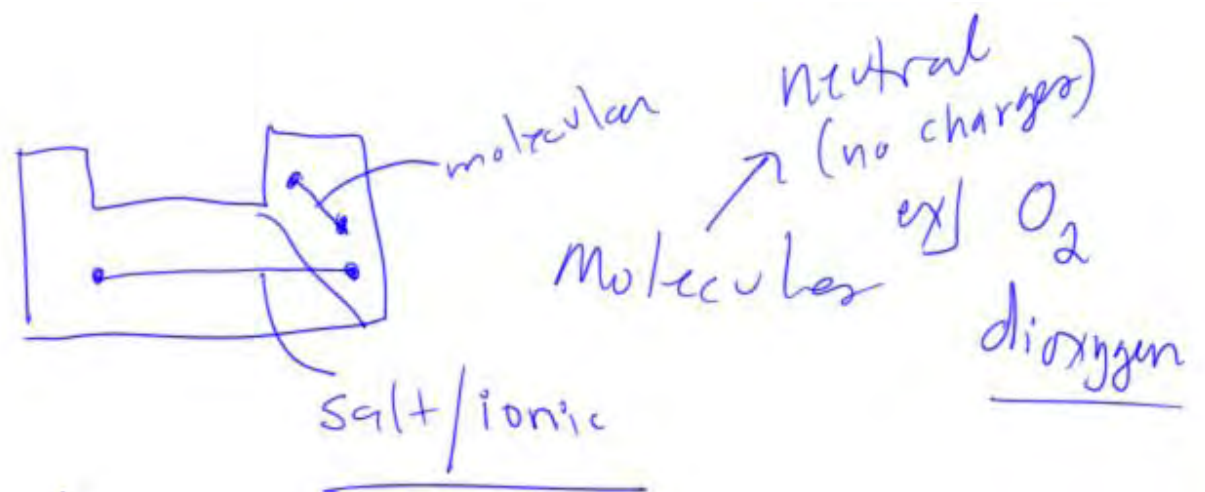 molecular
neutral
(no charges)
Molecules
ex] O₂
dioxygen
salt/ionic